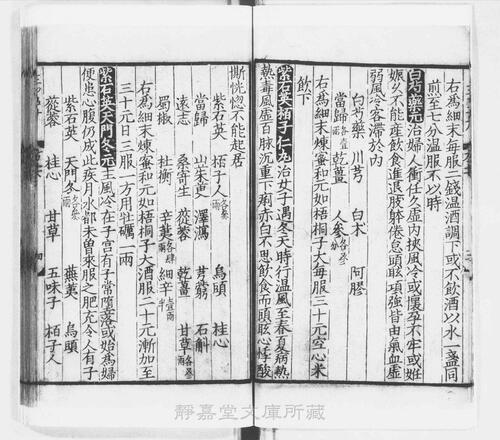 右爲細末每服二錢温酒調下或不飲酒以水一盞同
煎至七分温服不以時
白芍藥元治婦人衝任久虚内挾風冷或懷孕不牢或姙
娠久不能產飲食進退肢躰倦怠頭眩項強皆由氣血虚
弱風冷客滯於内
白芍藥 川芎 白朮 阿膠
當歸各壹兩 乾薑 人參各半兩
右爲細末煉蜜和元如梧桐子大每服三十元空心米
飲下
紫石英栢子仁丸治女子遇冬天時行温風至春夏病熱
熱毒風虚百脉沉重下痢赤白不思飲食而頭眩心悸酸
㿇恍惚不能起居
紫石英 栢子人各叁兩 烏頭 桂心
當歸 山茱萸 澤瀉 芎藭 石斛
遠志 桑寄生 蓯蓉 乾薑 甘草各貳兩
蜀椒 杜衡 辛荑各壹兩 細辛壹兩半
右爲細末煉蜜和元如梧桐子大酒服二十元漸加至
三十元日三服一方用牡礪一兩
紫石英天門冬元主風冷在子宫有子常墮落或始爲婦
便患心腹仍成此疾月水都未曾來服之肥充令人有子
紫石英 天門冬各叁兩 蕪荑 烏頭
蓯蓉 桂心 甘草 五味子 栢子人
靜嘉堂文庫所藏